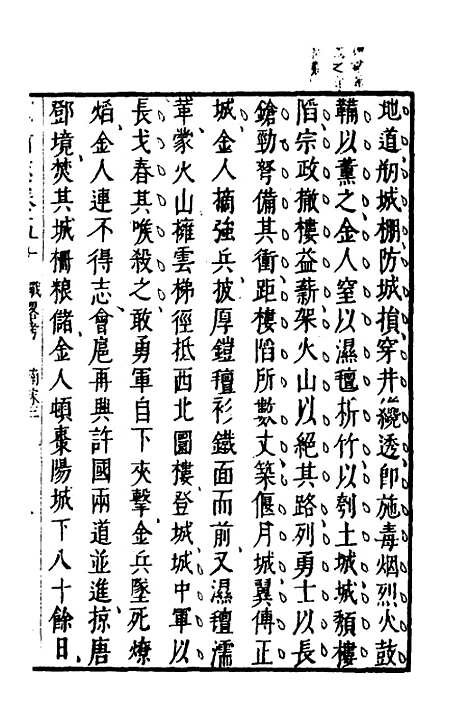 地道刱城棚防城損穿井纔透卽施毒烟烈火鼓
鞴以薰之金人窒以濕氊析竹以刳土城城頹樓
陷宗政撤樓益薪架火山以絕其路列勇士以長
鎗勁弩備其衝距樓陷所數丈築偃月城翼傅正
城金人摘強兵披厚鎧氊衫鐵面而前又濕氊濡
革蒙火山擁雲梯徑抵西北圜樓登城城中軍以
長戈舂其喉殺之敢勇軍自下夾擊金兵墜死燎
焰金人連不得志會扈再興許國兩道並進掠唐
鄧境焚其城柵粮儲金人頓棗陽城下八十餘日
戰畧考 南宋三